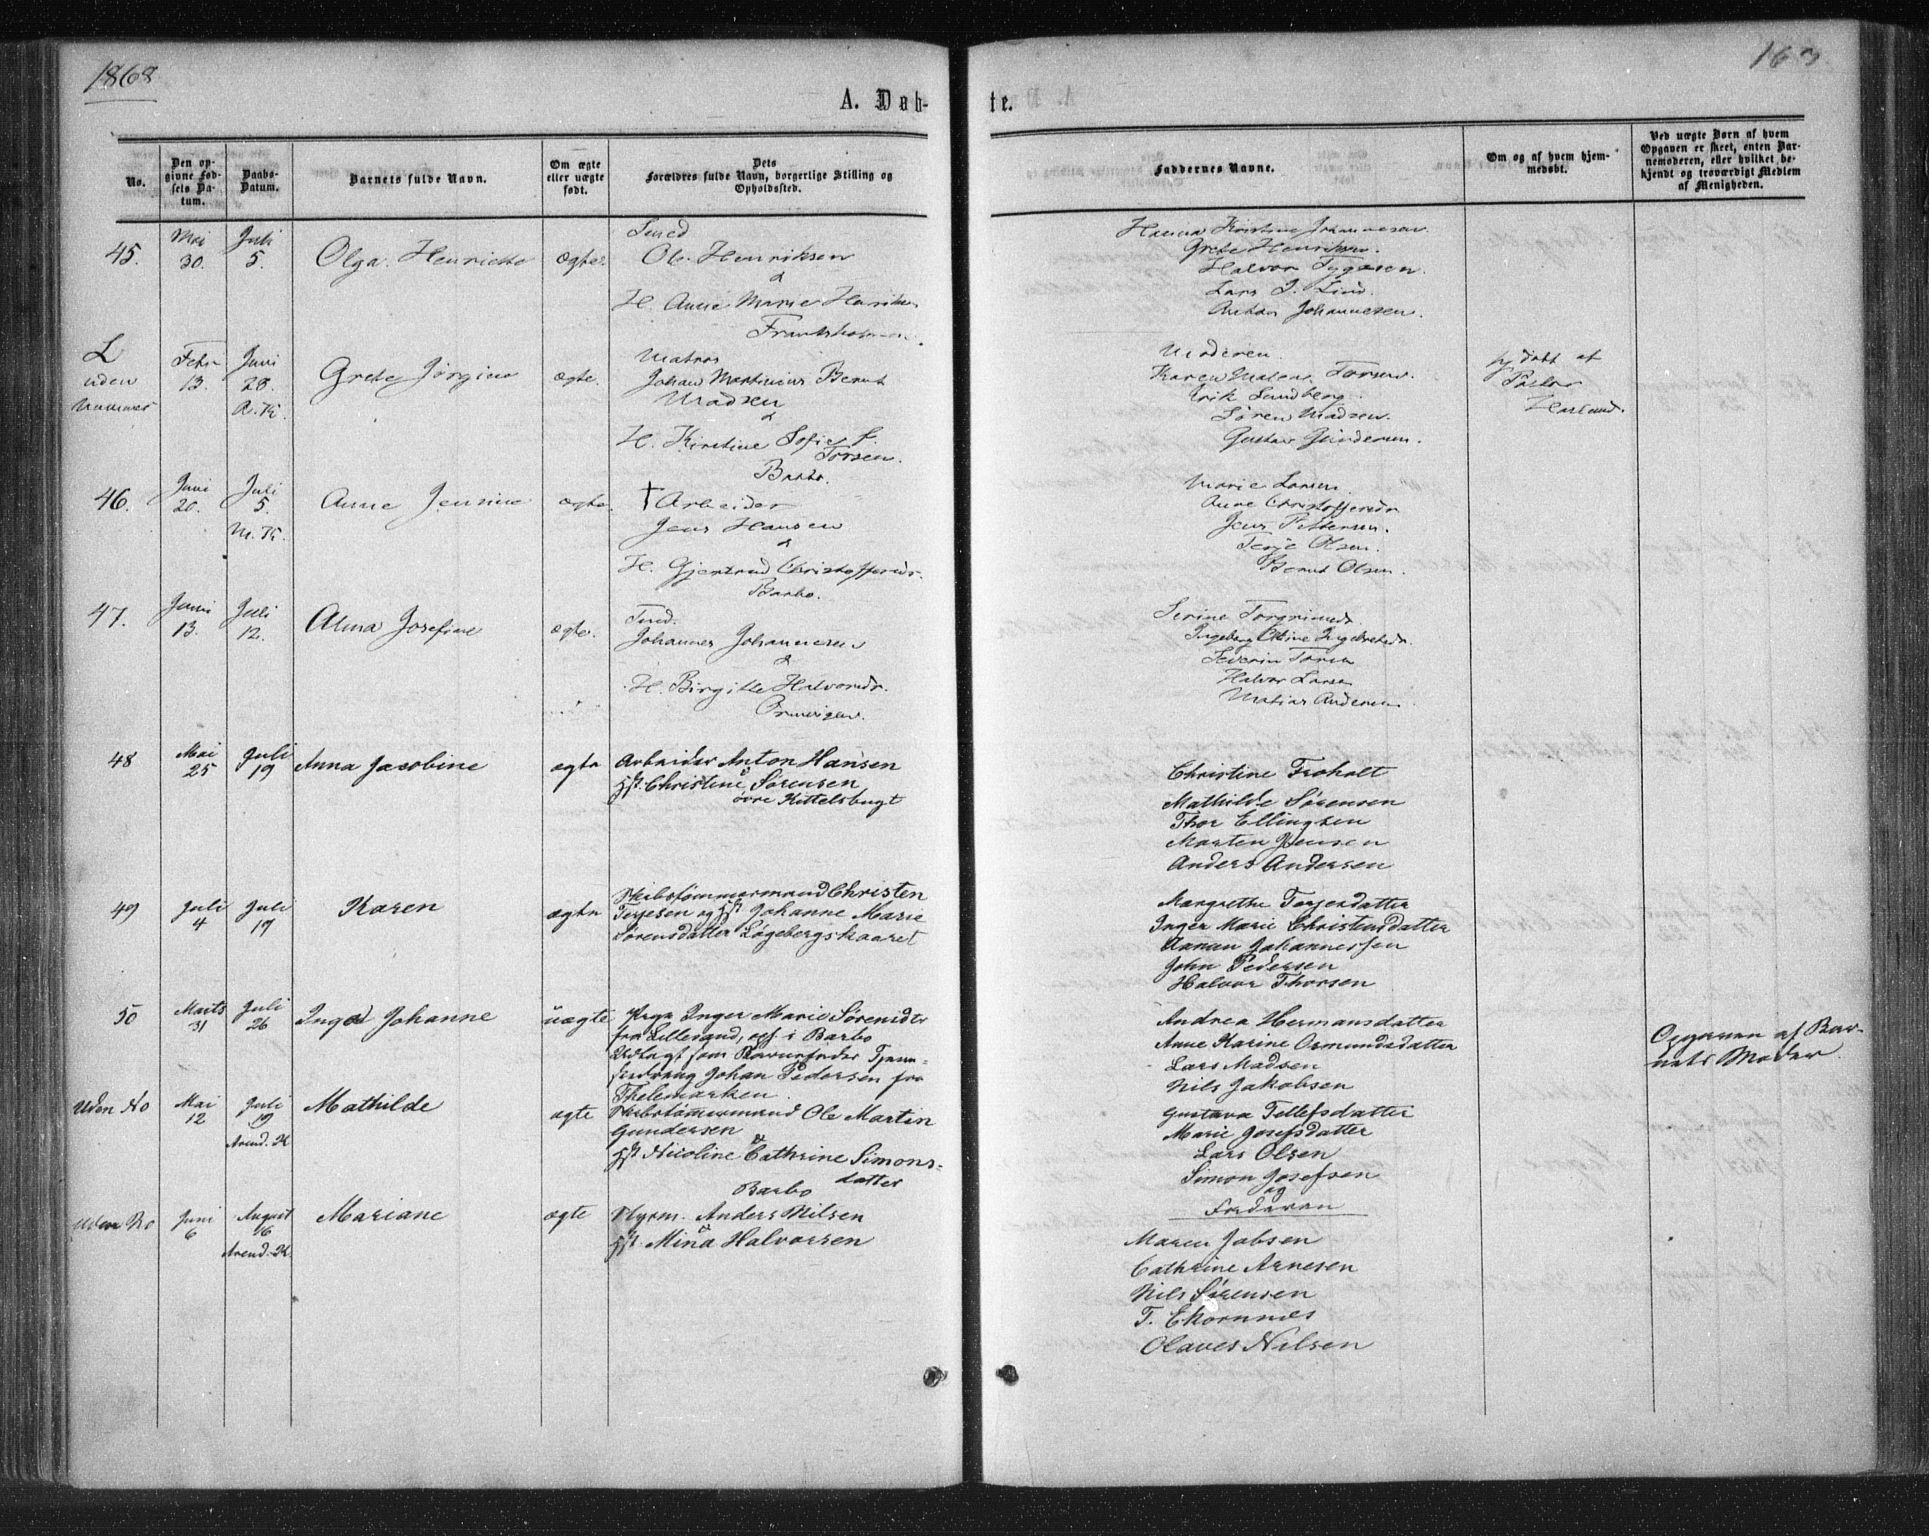 1868
163
A. Døb-
te.
No.
Den op-
givne Fød-
sels Da-
tum.
Daabs-
Datum.
Barnets fulde Navn.
Om ægte
eller uægte
født.
Dets
Forældres fulde Navn, borgerlige Stilling og
Opholdssted.
Faddernes Navne.
Om og af hvem hjem-
medøbt.
Ved uægte Børn af hvem
Opgaven er skeet, enten Bar-
nemoderen, eller hvilket be-
kjendt og troværdigt Medlem
af Menigheden.
45.
Mai
30.
Juli
5.
Olga Henriette
ægte.
Smed
Ole Henriksen
&
H. Anne Marie
Hanna Kristine Johannesen
Grete Henriksen.
Halvor Tygesen.
Lars J. Lind.
Anton Johannesen.
L
uden
Nummer
Febr
13.
Juni
28.
A. K.
Grete Jørgine
ægte.
Matros
Johan Martinius Bernt
Madsen
&
H. Kirstine Sofie F.
Torsen.
Barbo.
Moderen.
Karen Torsen.
Erik Sundberg.
Søren Madsen.
Gustav Gundersen.
hj døbt af
Pastor
46.
Juni
20.
Juli
5.
A. K.
Anne Jensine
ægte.
† Arbeider
Jens Hansen
&
H. Gjertrud Christoffersdr.
Barbo.
Marie Larsen.
Anne Christoffersdr
Jens Pettersen.
Terje Olsen.
Bernt Olsen.
47.
Juni
13.
Juli
12.
Alma Josefine
ægte.
Tmd.
Johannes Johannesen
&
H. Birgitte Halvorsdr.
Serine Torgrimsdr.
Ingeborg Oline
Severin Torsen
Halvor Larsen
Matias Andersen
48
Mai
25
Juli
19
Anna Jacobine
ægte
Arbeider Anton Hansen
&
Hst. Christine Sørensen
øvre Kittelsbugt
Christine Froholt
Mathilde Sørensen
Thor Ellingsen
Morten Jensen
Anders Andersen
49
Juli
4
Juli
19
Karen
ægte
Skibstømmermand Christen
Terjesen og Hst Johanne Marie
Sørensdatter Løgebergskaaret
Margrethe Terjesdatter
Inger Marie Christensdatter
Aanon Johannessen
John Pedersen
Halvor Thorsen
50
Marts
31
Juli
26
Inga Johanne
uægte
Pige Inger Marie Sørensdtr
fra Lillesand, opf. i Barbo
Udlagt som Barnefader Tjene-
stedreng Johan Pedersen fra
Thelemarken.
Andrea Hermansdatter
Anne Karine Osmundsdatter
Lars Madsen
Nils Jakobsen
Opgaven af Bar-
nets Moder.
Uden No
Mai
12
Juli
19
Arend. K
Mathilde
ægte
Skibstømmermand Ole Martin
Gundersen
&
Hst Nicoline Cathrine Simons-
datter
Barbo
Gustava Tellefsdatter
Marie Josefsdatter
Lars Olsen
Simon Josefsen
og
Faderen
Uden No
Juni
6
August
16
Arend. K
Mariane
ægte
Styrm. Anders Nilsen
&
Hst. Mina Halvorsen
Maren Jobsen
Cathrine Arnesen
Nils Sørensen
T. Ekornnes
Olaves Nilsen